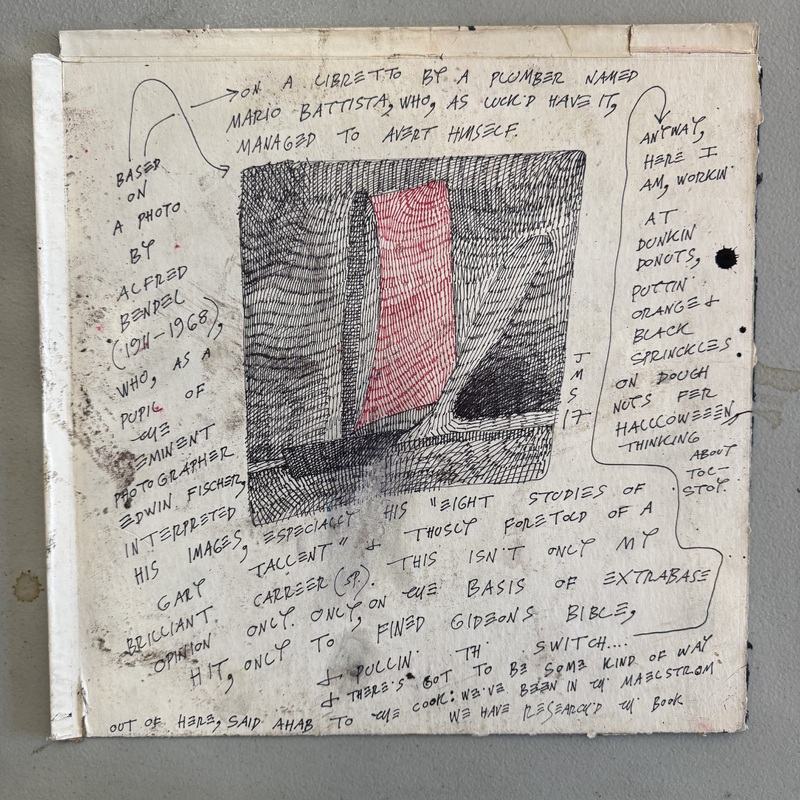 BASED
ON
A PHOTO
BY
ALFRED
BENDEL
(1911-1968),
WHO, AS A
PUPIL OF
THE
EMINENT
PHOTOGRAPHER
EDWIN FISCHER,
INTERPRETED
HIS IMAGES, ESPECIALLY HIS "EIGHT STUDIES OF
GARY TALLENT" & THUSLY FORETOLD OF A
BRILLIANT CARREER (SP.). THIS ISN'T ONLY MY
OPINION ONLY. ONLY, ON THE BASIS OF EXTRABASE
HIT, ONLY TO FINED GIDEONS BIBLE,
& PULLIN' TH' SWITCH....
& THERE'S GOT TO BE SOME KIND OF WAY
OUT OF HERE, SAID AHAB TO THE COOK: WE'VE BEEN IN TH' MAELSTROM
WE HAVE RESEARCH'D TH' BOOK
ON A LIBRETTO BY A PLUMBER NAMED
MARIO BATTISTA, WHO, AS LUCK'D HAVE IT,
MANAGED TO AVERT HIMSELF.
ANYWAY,
HERE I
AM, WORKIN'
AT
DUNKIN
DONUTS,
PUTTIN'
ORANGE &
BLACK
SPRINCKLES
ON DOUGH
NUTS FER
HALLLOWEEEN,
THINKING
ABOUT
TOL-
STOY.
J
M
S
17